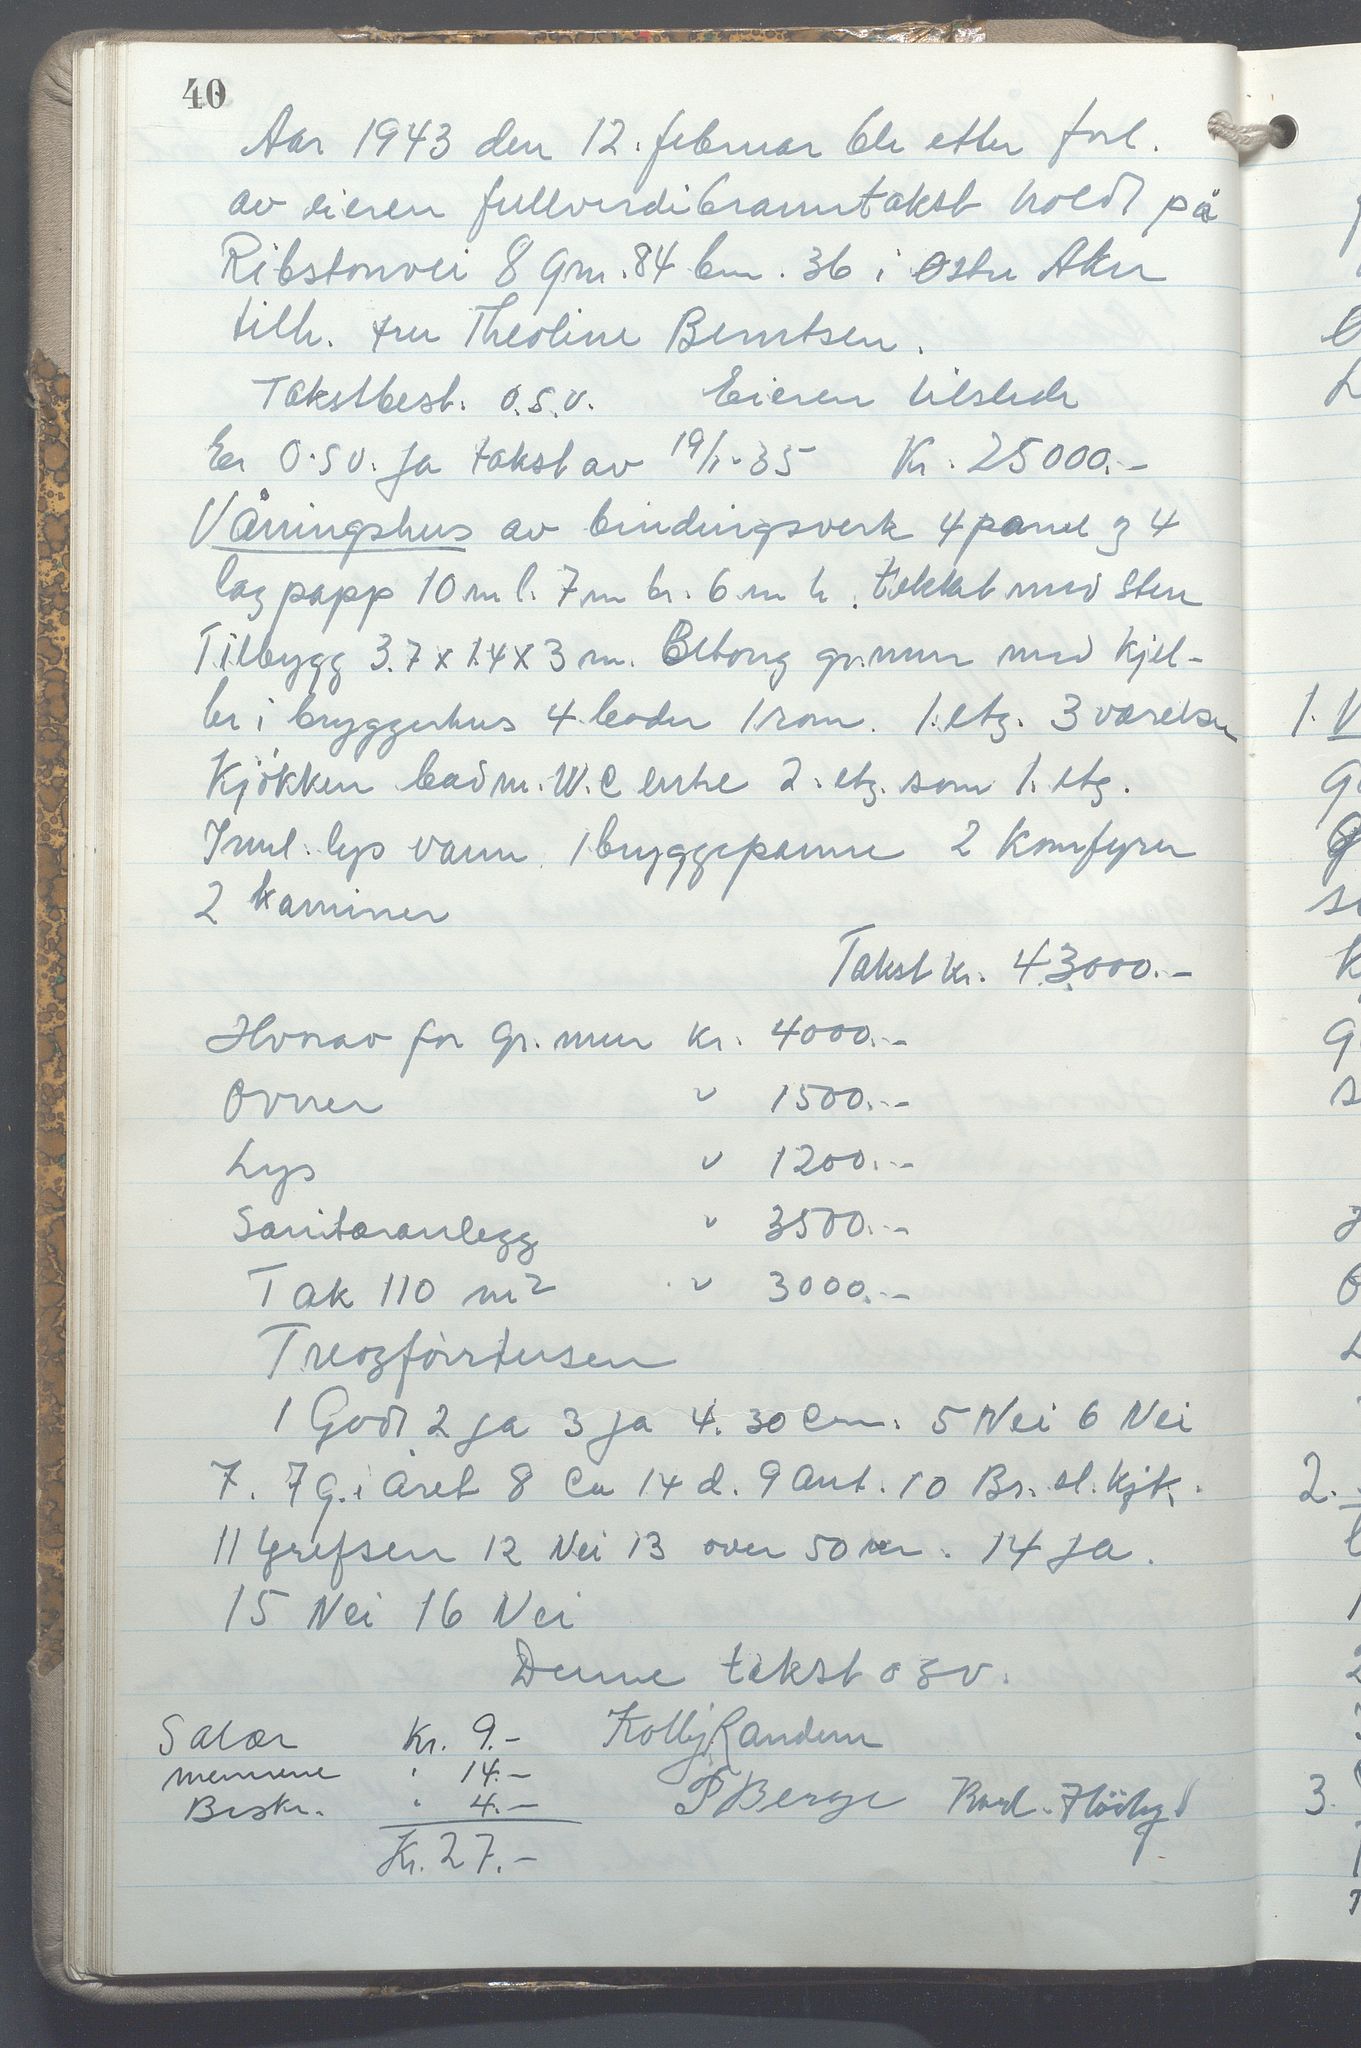 40
Aar 1943 den 12. februar ble etter forl.
av eieren fullverdibranntakst holdt på
Ribstonvei 8 gm. 84 bm. 36 i Østre Aker
tilh. fru Theoline Berntsen.
Takstbest. o.s.v. Eieren tilstede
Er O.S.V. Ja takst av 19/1-35 Kr. 25000.-
Våningshus av bindingsverk 4 panel og 4
lag papp 10 m l. 7 m br. 6 m h. tekket med sten
Tilbygg 3.7 x 1.4 x 3 m. Betong gr.mur med kjel-
ler i bryggerhus 4 boder 1 rom. 1. etg. 3 værelser
Kjøkken bad m. W.C entre 2. etg. som 1. etg.
Innl. lys vann 1 bryggepanne 2 Komfyrer
2 kaminer
Takst kr. 43000.-
Hvorav for gr. mur kr. 4000.-
Ovner " 1500.-
Lys " 1200.-
Sanitæranlegg " 3500.-
Tak 110 m2 " 3000.-
Treogførrtusen
1 Godt 2 Ja 3 Ja 4. 30 Cm. 5 Nei 6 Nei
7. 7 G. i Året 8 Ca 14 d. 9 Ant. 10 Br. sl. kjk.
11 Grefsen 12 Nei 13 over 50 m. 14 Ja.
15 Nei 16 Nei
Denne takst o s v.
Salær Kr. 9.- Kolbj. Randem
Mennene " 14.-
Beskr. " 4.- P Berge Karl. Høiby
Kr. 27.-
1.
2.
3.